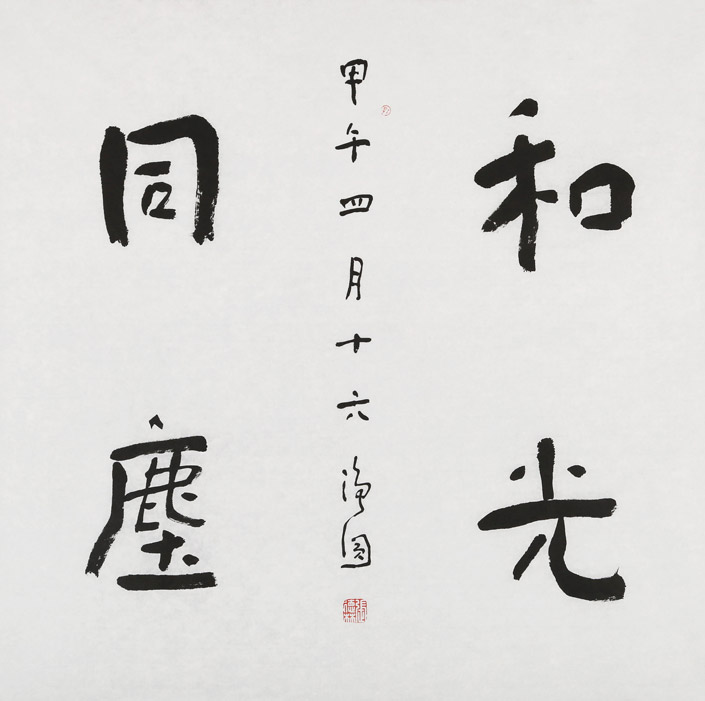 和光
同塵
甲午四月十六 淨圓